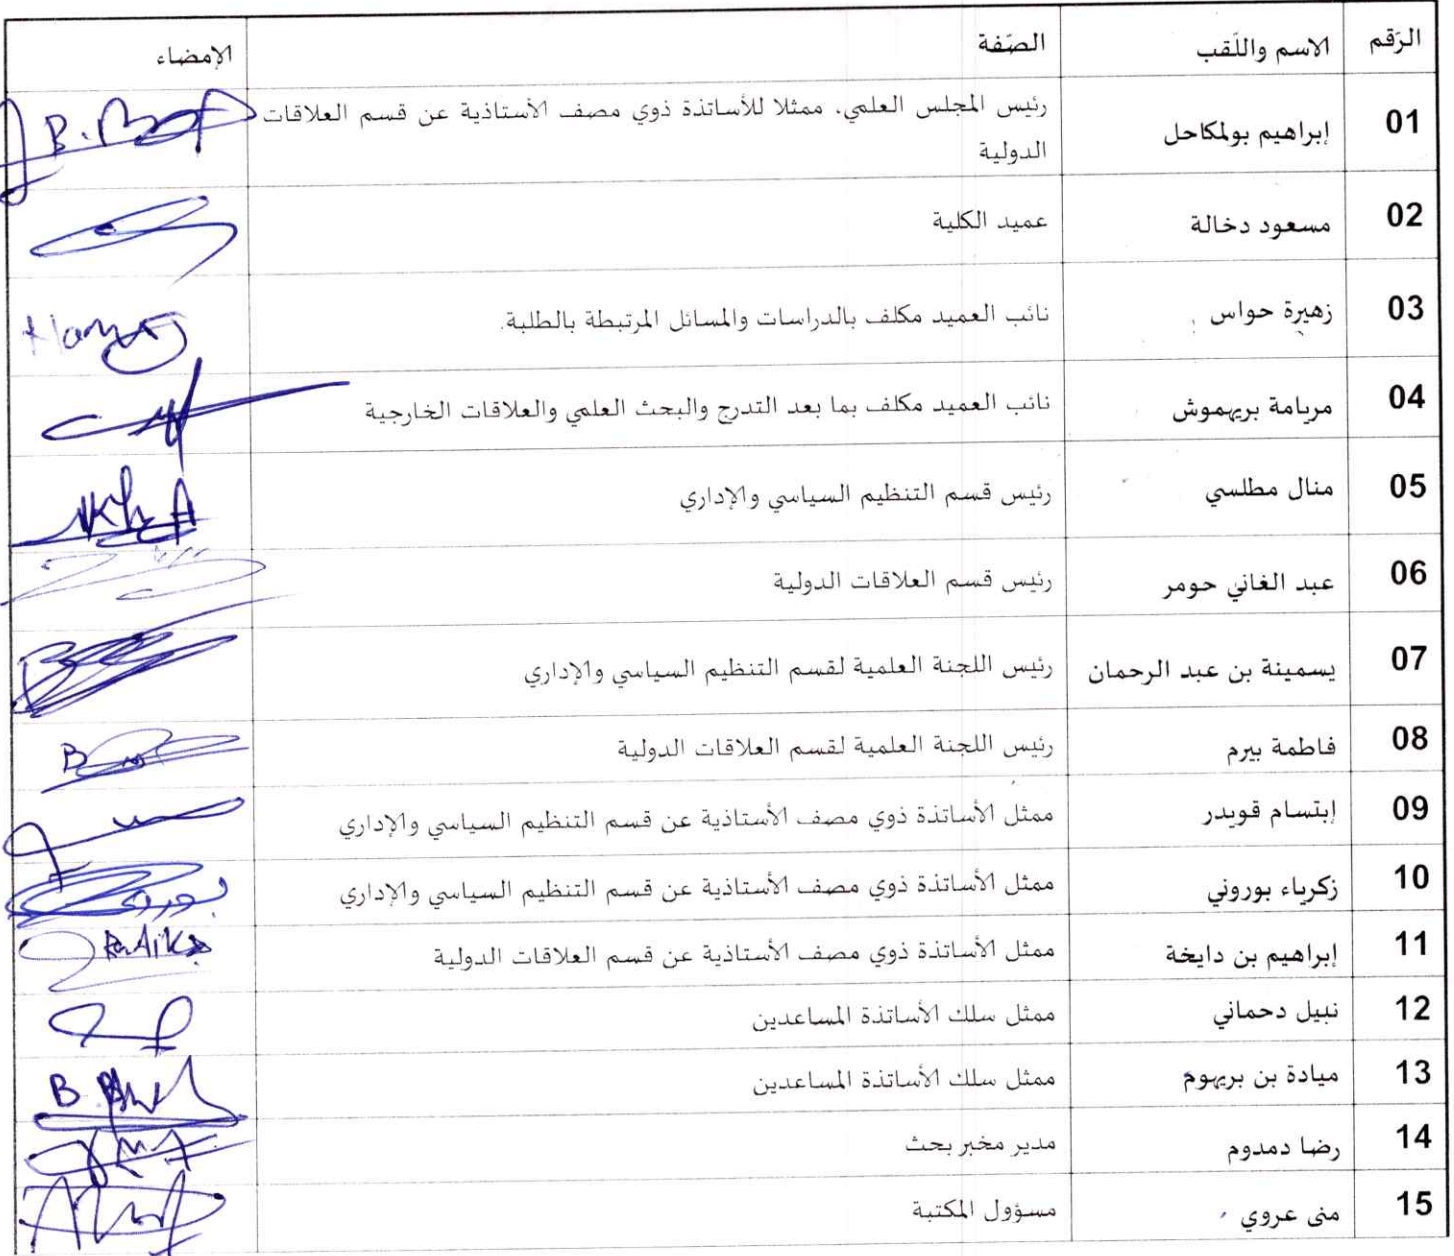 الرَقم الاسم واللّقب الصّفة الإمضاء
01 إبراهيم بولمكاحل رئيس المجلس العلمي. ممثلا للأساتذة ذوي مصف الأستاذية عن قسم العلاقات
الدولية
02 مسعود دخالة عميد الكلية
03 زهيرة حواس نائب العميد مكلف بالدراسات والمسائل المرتبطة بالطلبة.
04 مريامة بريهموش نائب العميد مكلف بما بعد التدرج والبحث العلمي والعلاقات الخارجية
05 منال مطلسي رئيس قسم التنظيم السياسي والإداري
06 عبد الغاني حومر رئيس قسم العلاقات الدولية
07 يسمينة بن عبد الرحمان رئيس اللجنة العلمية لقسم التنظيم السياسي والإداري
08 فاطمة بيرم رئيس اللجنة العلمية لقسم العلاقات الدولية
09 إبتسام قويدر ممثل الأساتذة ذوي مصف الأستاذية عن قسم التنظيم السياسي والإداري
10 زكرياء بوروني ممثل الأساتذة ذوي مصف الأستاذية عن قسم التنظيم السياسي والإداري
11 إبراهيم بن دايخة ممثل الأساتذة ذوي مصف الأستاذية عن قسم العلاقات الدولية
12 نبيل دحماني ممثل سلك الأساتذة المساعدين
13 ميادة بن بريهوم ممثل سلك الأساتذة المساعدين
14 رضا دمدوم مدير مخبر بحث
15 منى عروي مسؤول المكتبة